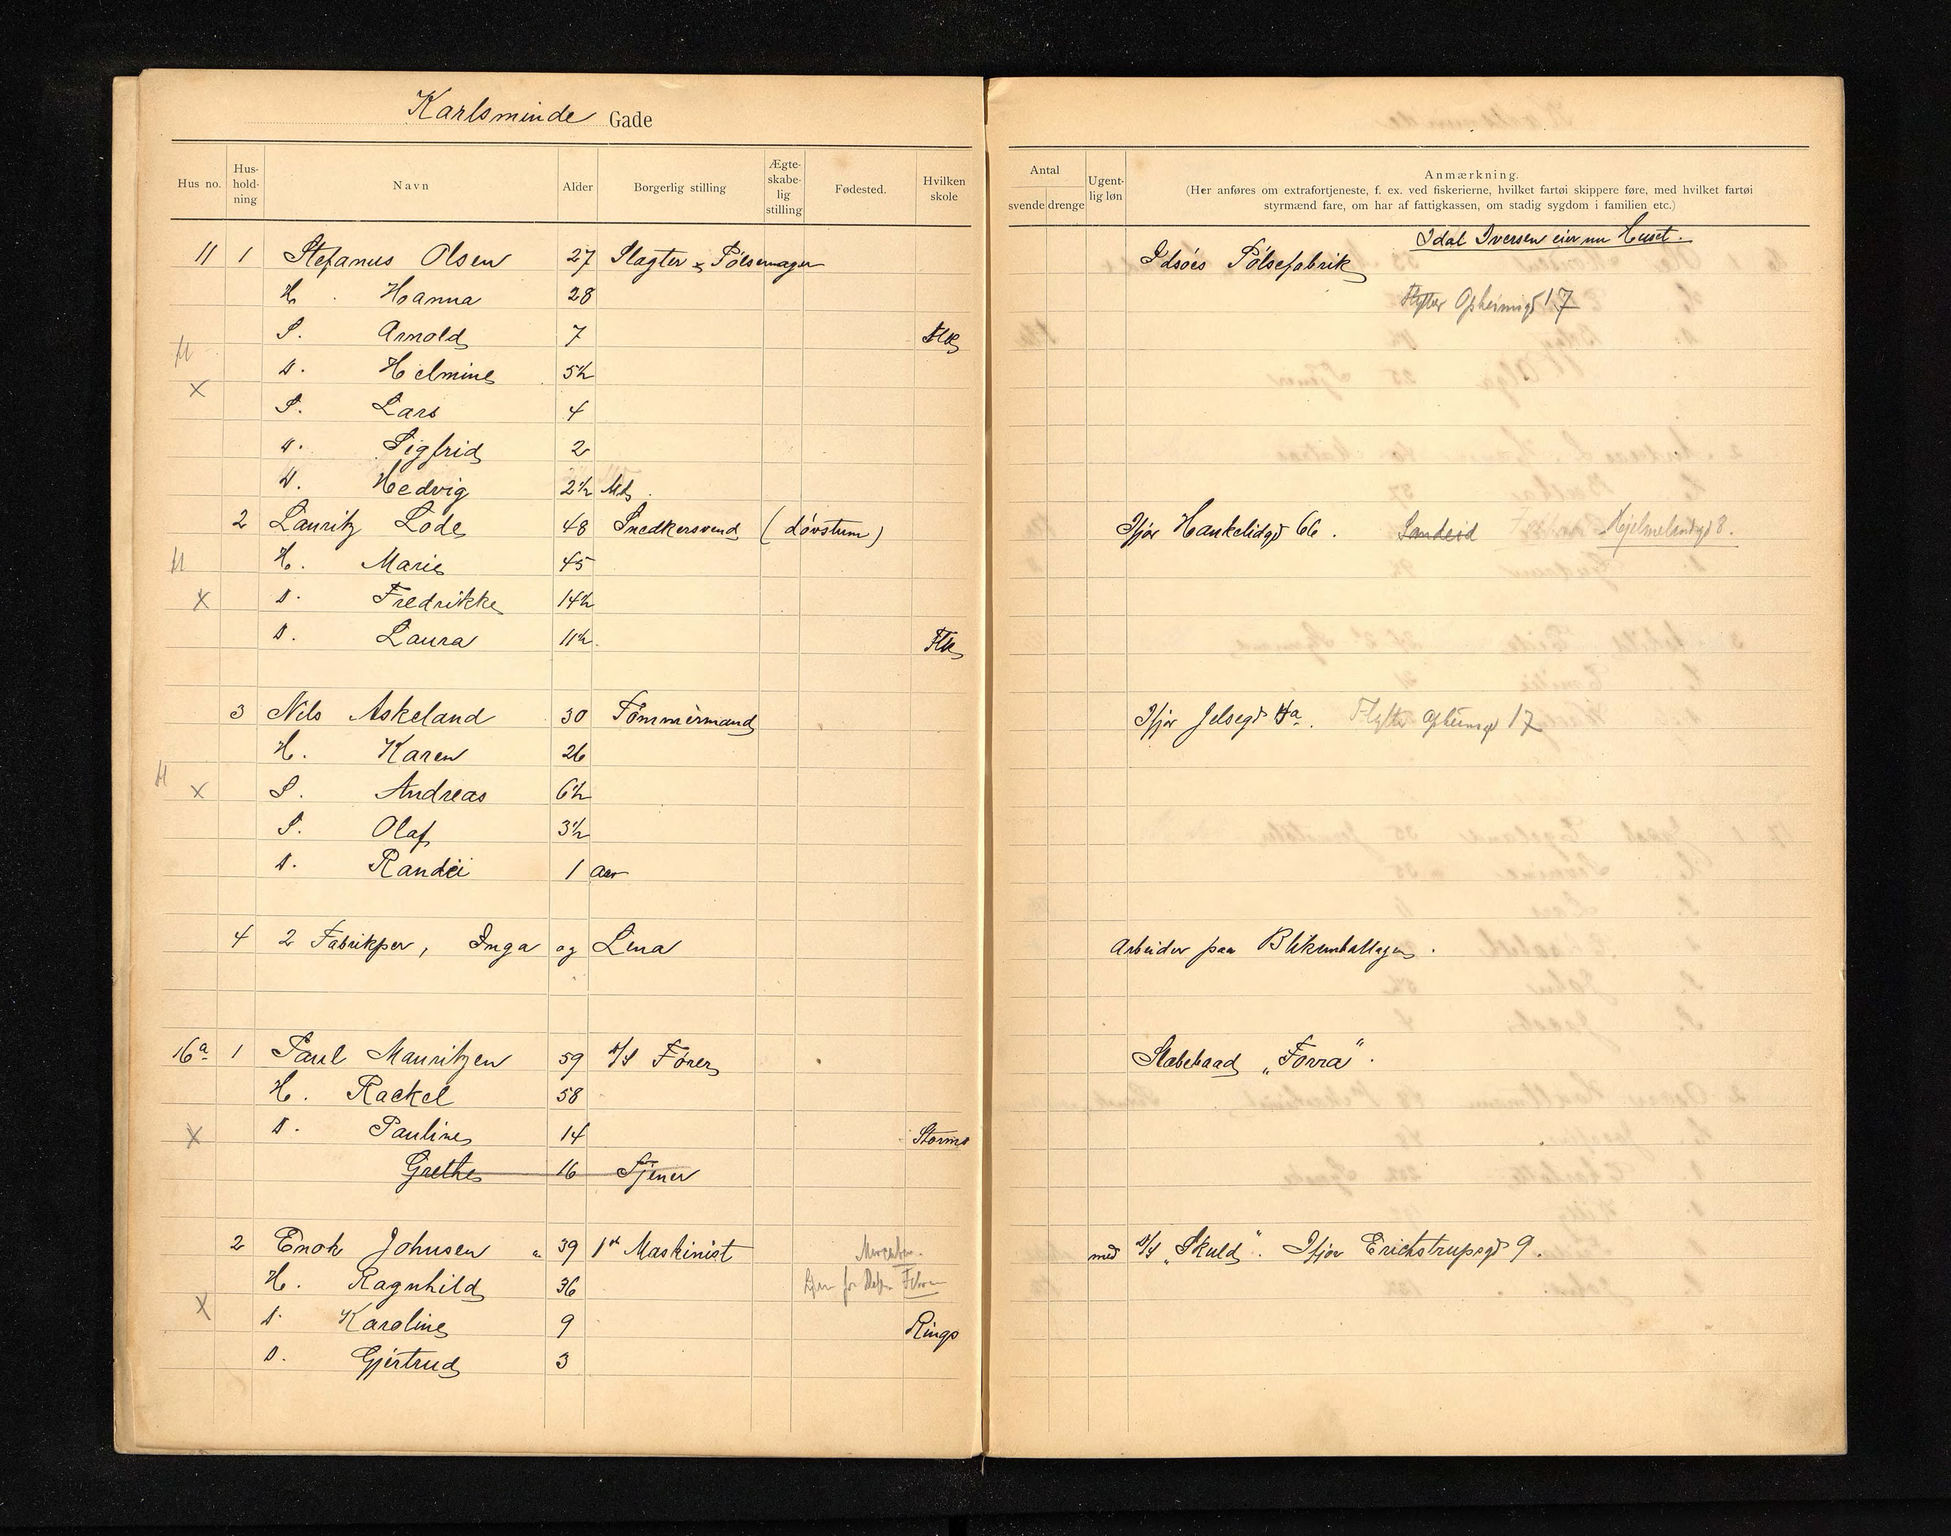 Karlsminde Gade
Hus no. Hus-hold-ning Navn Alder Borgerlig stilling Ægte-skabe-lig stilling Fødested. Hvilken skole
Antal svende drenge Ugent-lig løn Anmærkning.
(Her anføres om extrafortjeneste, f. ex. ved fiskerierne, hvilket fartøi skippere føre, med hvilket fartøi
styrmænd fare, om har af fattigkassen, om stadig sygdom i familien etc.)
Idal Iversen eier nu Huset.
11 1 Stefanus Olsen 27 Slagter & Pølsemager Idsøes Pølsefabrik
H. Hanna 28 Flytter Opheimsgd 17
S. Arnold 7
D. Helmine 5½
x
S. Lars 4
D. Sigfrid 2
D. Hedvig 2½ Md.
2 Lauritz Lode 48 Snedkersvend (døvstum) Ifjor Hankelidgd 66. Sandeid Hjelmelandgd 8.
H. Marie 45
x D. Fredrikke 14½
D. Laura 11½ Flk
3 Nils Askeland 30 Tømmermand Ifjor Jelsegd 4a. Flytter Opheimsgd 17
H. Karen 26
x S. Andreas 6½
S. Olaf 3½
D. Randei 1 aar
4 2 Fabrikper, Inga og Lena Arbeider paa Blikemballagen.
16a 1 Paul Mauritzen 59 D/S Fører Slæbebaad „Forra“.
H. Rackel 58
x D. Pauline 14 Storms
Grethe 16 Tjener
2 Enok Johnsen 39 1st Maskinist med D/S „Skuld“. Ifjor Erichstrupsgd 9.
H. Ragnhild 36
x D. Karoline 9 Rings
D. Gjertrud 3